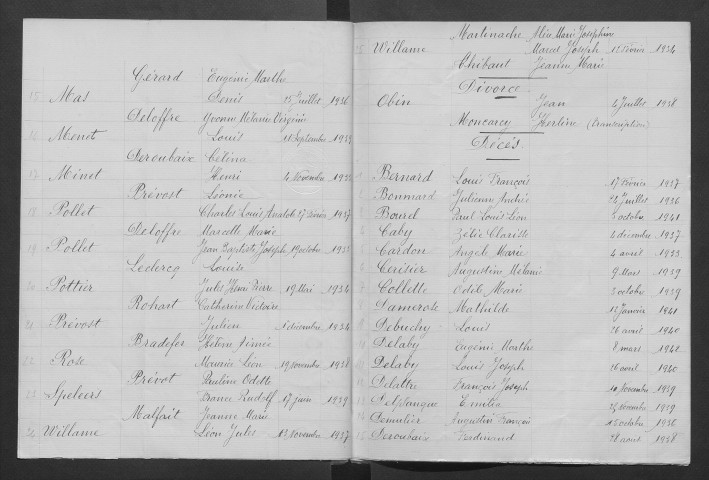 Gérard Eugénie Marthe
15 Mas Denis 15 Juillet 1936
Deloffre Yvonne Mélanie Virginie
16 Menet Louis 11 Septembre 1939
Deroubaix Célina
17 Minet Henri 4 Novembre
Prévost Léonie
18 Pollet Charles Louis Anatole 27 1937
Deloffre Marcelle Marie
19 Pollet Jean Baptiste Joseph octobre
Leclercq Louise
20 Pottier Jules Henri Pierre 19 Mai 1934
Rohart Catherine Victoire
21 Prévost Julien 1 décembre 1934
Bradefer Aimée
22 Rose Maurice Léon 19 novembre 1938
Prévot Pauline Odette
23 Speleers Frans Rudolf 17 juin 1939
Malfait Jeanne Marie
24 Willame Léon Jules 13 Novembre 1937
Martinache Alice Marie Joséphine
25 Willame Marcel Joseph Février 1934
Thibaut Jeanne Marie
Divorce
Obin Jean 4 Juillet 1938
Moncarey (transcription)
Décès
1 Bernard Louis François 17 février 1937
2 Bonmard Julienne 24 Juillet 1936
3 Bourel Paul Louis Léon 5 octobre 1941
4 Caby Zélie Clarisse 4 décembre 1937
5 Cardon Angèle Marie 4 avril 1933
6 Ceritier Augustine Mélanie 9 Mars 1939
7 Collette Odile Marie 3 octobre 1939
8 Damerose Mathilde 12 Janvier 1941
9 Debuchy Louis 20 avril 1940
10 Delaby Eugénie Marthe 8 mars
11 Delaby Louis Joseph 26 avril 1940
12 Delattre François Joseph 10 Novembre 1939
13 Emilie 25 Novembre 1939
14 Demulier Augustin François 15 octobre 1936
15 Deroubaix Ferdinand 28 août 1938